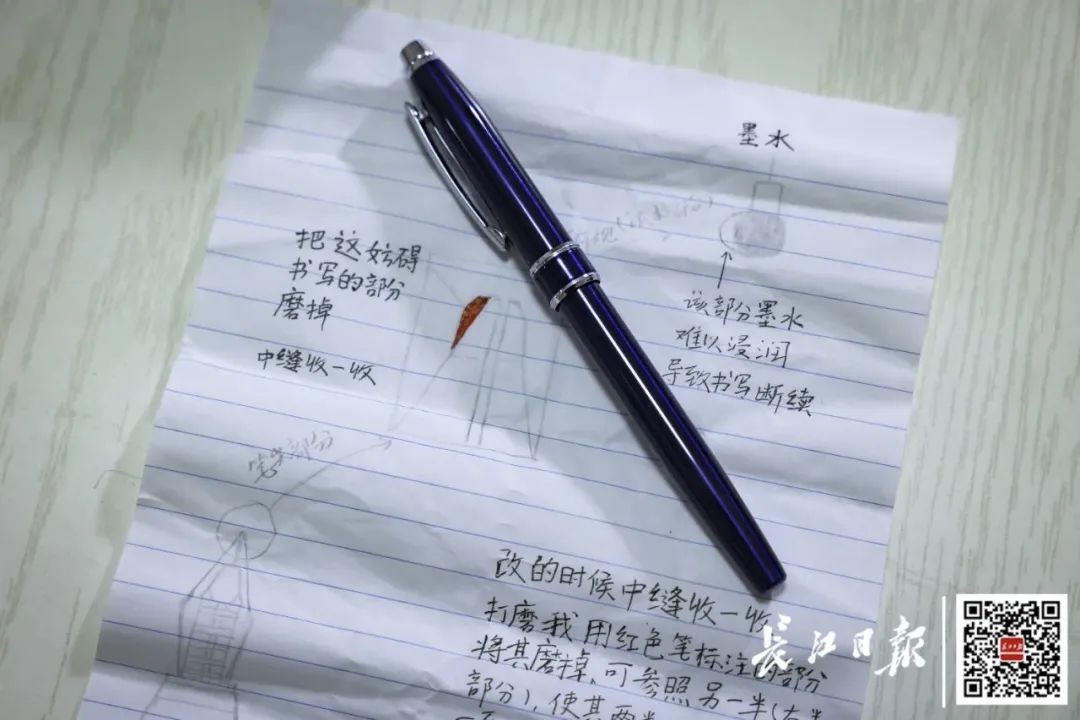 墨水
把这妨碍
书写的部分
磨掉
中缝收一收
该部分墨水
难以浸润
导致书写断续
部分
改的时候中缝收一收
打磨我用红色笔标注的部份
将其磨掉,可参照另一半(右半
部分),使其两半
长江日报